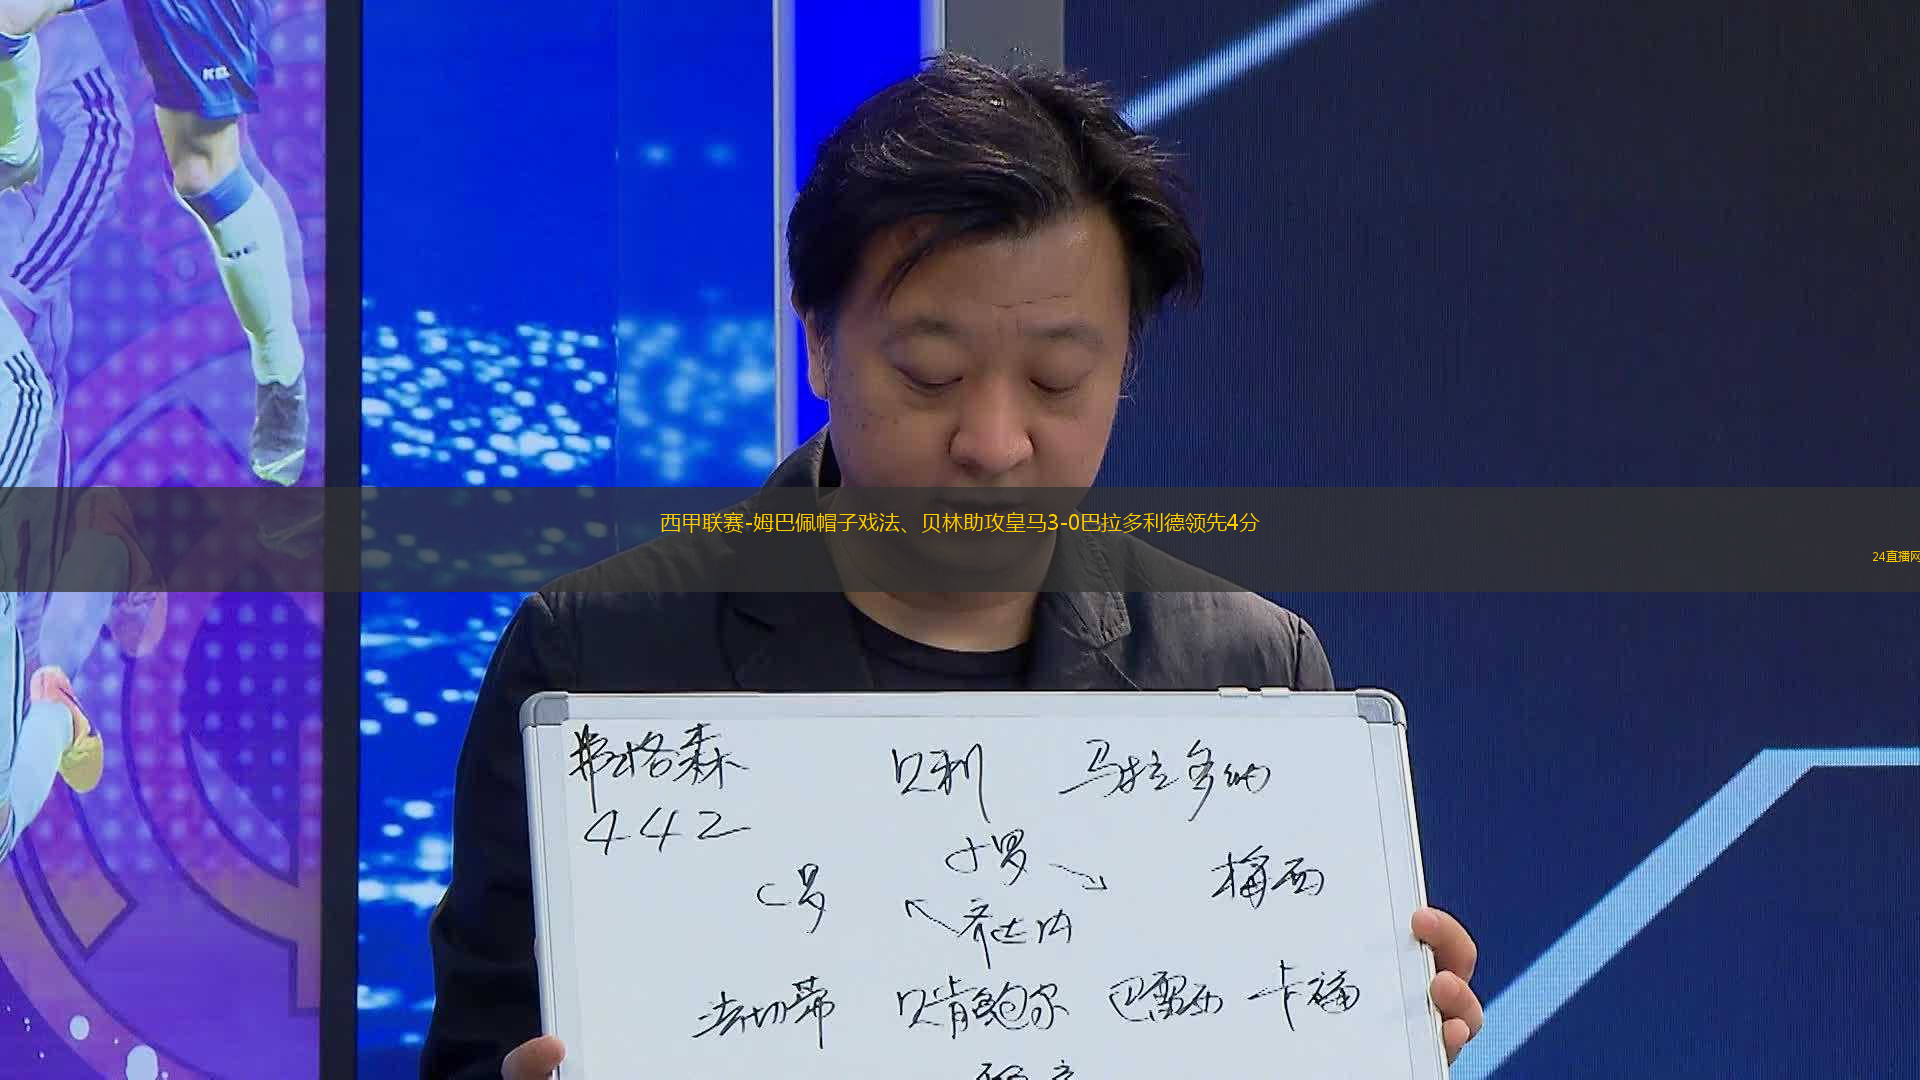 KB
西甲联赛-姆巴佩帽子戏法、贝林助攻皇马3-0巴拉多利德领先4分
24直播网
弗格森 贝利 马拉多纳
442
小罗
C罗 梅西
齐达内
法切蒂 贝肯鲍尔 巴雷西 卡福